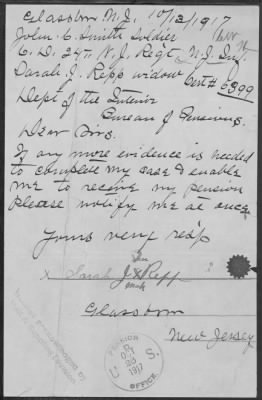 Glassboro N.J. 10/12/1917
John C. Smith Soldier Civil W
C. D. 24th N.J. Regt N.J. Inf.
Sarah J. Repp widow Cert # 6399
Dept of the Interior
Bureau of Pensions.
Dear Sirs.
If any more evidence is needed
to complete my case & enable
me to receive my pension
Please notify me at once
Yours very resp
her
x Sarah J. X Repp
mark
Glassboro
New Jersey
PENSION
OCT
1917
U S.
OFFICE